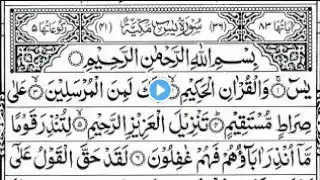 اٰیاتها ٨٣ (٣٦) سُوْرَةُ يٰسٓ مَكِّيَّةٌ (٤١) رکوعاتها ٥
بِسْمِ اللّٰهِ الرَّحْمٰنِ الرَّحِيْمِ
يٰسٓ ۝١ وَالْقُرْاٰنِ الْحَكِيْمِ ۝٢ لَمِنَ الْمُرْسَلِيْنَ ۝٣ عَلٰى
صِرَاطٍ مُّسْتَقِيْمٍ ۝٤ تَنْزِيْلَ الْعَزِيْزِ الرَّحِيْمِ ۝٥ لِتُنْذِرَ قَوْمًا
مَّاۤ اُنْذِرَ اٰبَآؤُهُمْ فَهُمْ غٰفِلُوْنَ ۝٦ لَقَدْ حَقَّ الْقَوْلُ عَلٰۤى